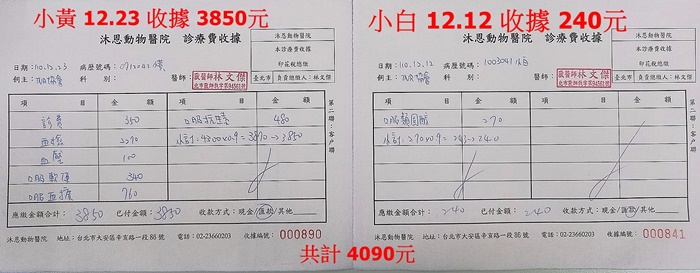 小黃 12.23 收據 3850元
沐恩動物醫院 診療費收據
本診療費收據
印花稅總繳
臺北市 負責總繳人:林文傑
日期:110.12.23 病歷號碼:
飼主: 科別: 醫師: 獸醫師 林文傑
項目 金額 項目 金額
診費 350 口服抗生素 480
血檢 2270 小計=4300×0.9=3870→3850
血壓 100
口服軟便 340
760
應繳金額合計: 3850 已付金額: 3850 收款方式:現金/匯款/其他
沐恩動物醫院 地址:台北市大安區辛亥路一段86號 電話:02-23660203 收據編號: 000890
第二聯:客戶聯
小白 12.12 收據 240元
沐恩動物醫院 診療費收據
本診療費收據
印花稅總繳
臺北市 負責總繳人:林文傑
日期:110.12.12 病歷號碼:1003041 小白
科別: 醫師: 獸醫師 林文傑
項目 金額 項目 金額
口服類固醇 270
小計=270×0.9=243→240
應繳金額合計: 240 已付金額: 240 收款方式:現金/匯款/其他
沐恩動物醫院 地址:台北市大安區辛亥路一段86號 電話:02-23660203 收據編號: 000841
第二聯:客戶聯
共計 4090元